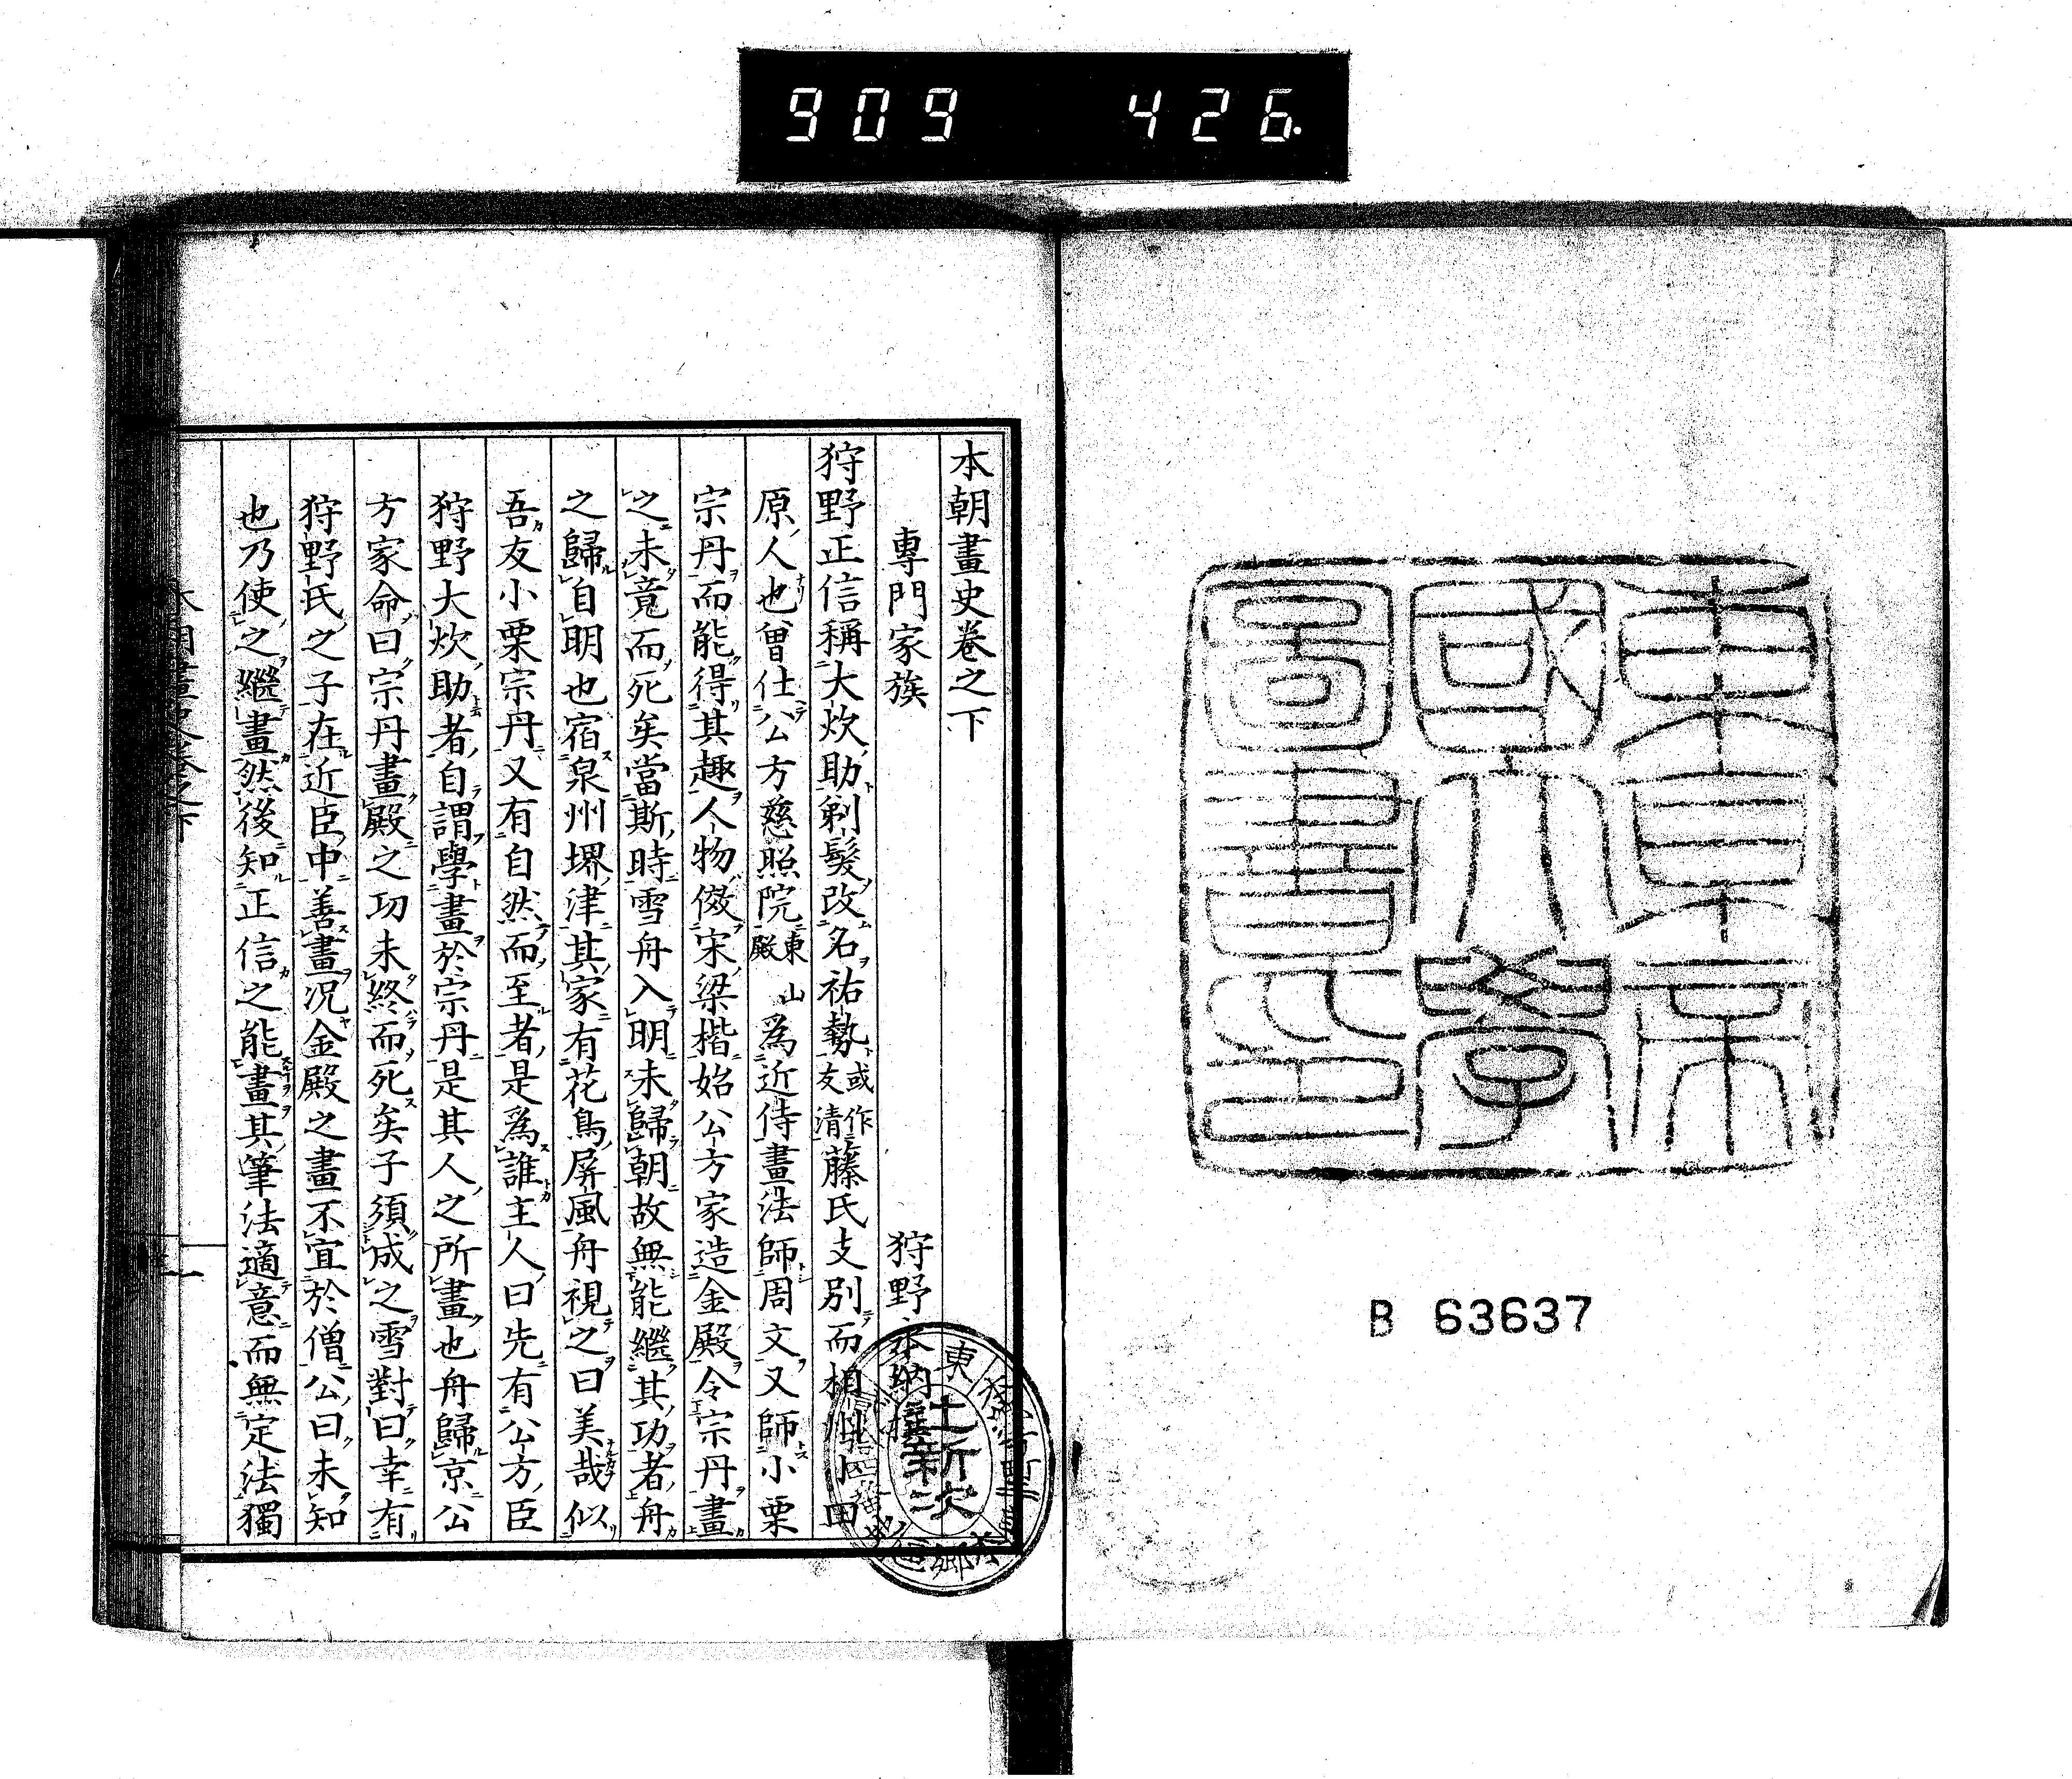 909 426.
東京帝
國大學
圖書之印
B 63637
本朝畫史卷之下
專門家族 狩野永納撰
狩野正信稱大炊助剃髮改名祐勢或作友清藤氏支別而相州小田
原人也曾仕公方慈照院東山殿爲近侍畫法師周文又師小栗
宗丹而能得其趣人物傚宋梁楷始公方家造金殿令宗丹畫
之未竟而死矣當斯時雪舟入明未歸朝故無能繼其功者舟
之歸自明也宿泉州堺津其家有花鳥屏風舟視之曰美哉似
吾友小栗宗丹又有自然而至者是爲誰主人曰先有公方臣
狩野大炊助者自謂學畫於宗丹是其人之所畫也舟歸京公
方家命曰宗丹畫殿之功未終而死矣子須成之雪對曰幸有
狩野氏之子在近臣中善畫況金殿之畫不宜於僧公曰未知
也乃使之繼畫然後知正信之能畫其筆法適意而無定法獨
本朝畫史卷之下 一